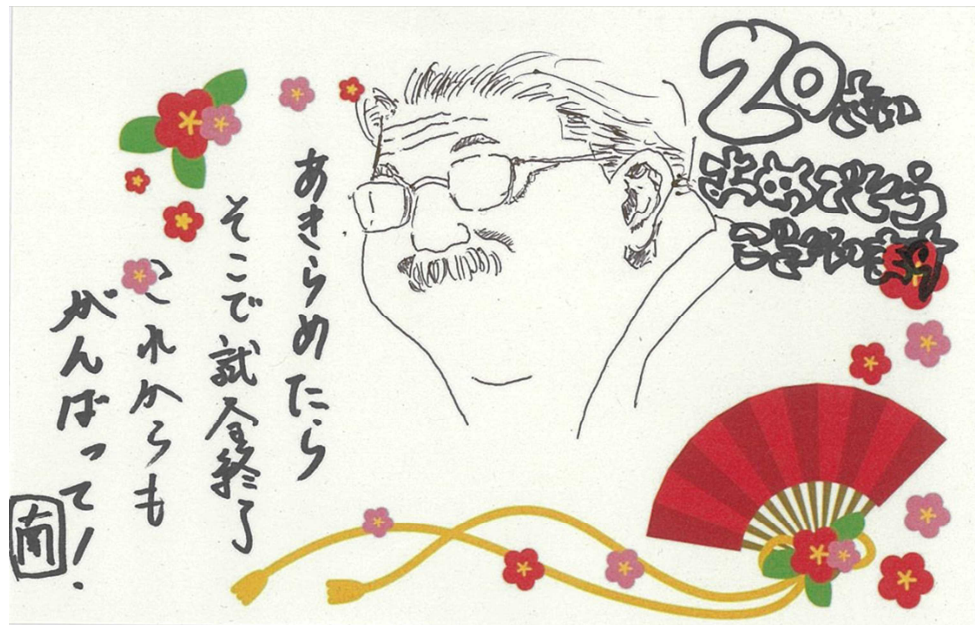 20さい
おめでとう
あきらめたら
そこで試合終了
これからも
がんばって!
南